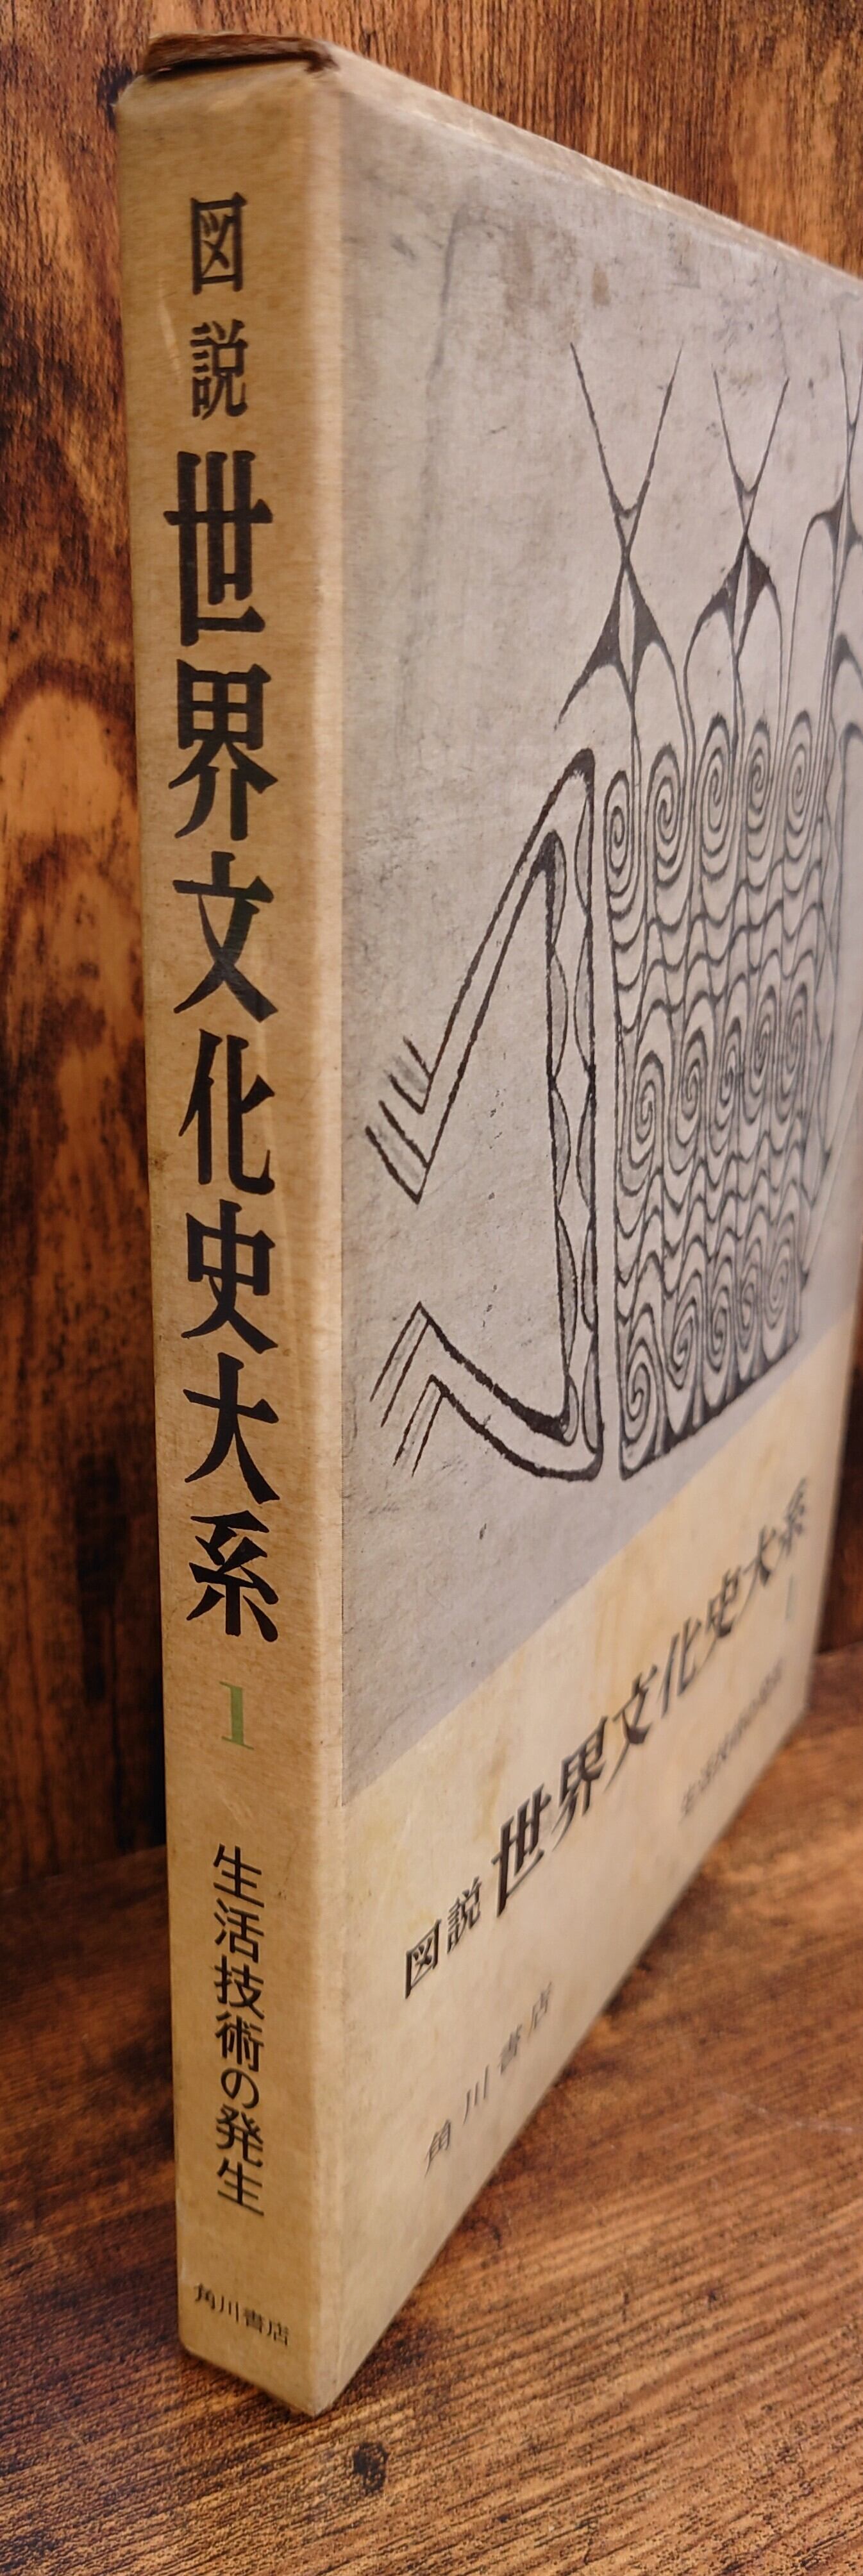 図説 世界文化史大系 1
生活技術の発生
角川書店
図説 世界文化史大系 1
生活技術の発生
角川書店